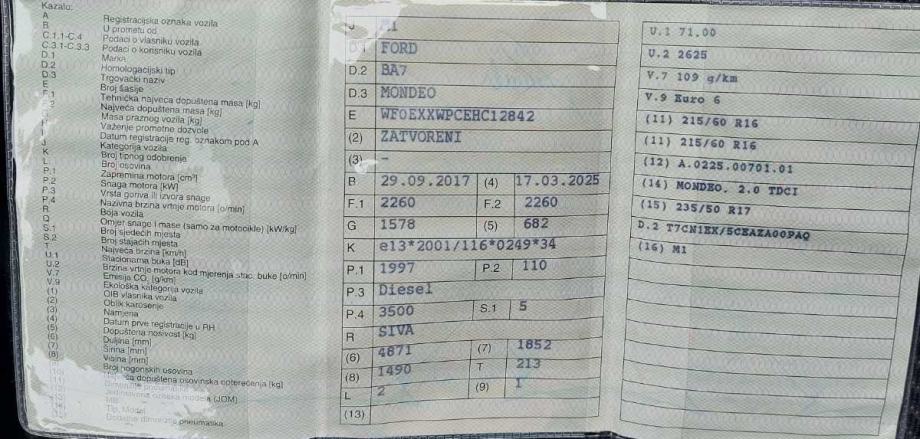 Kazalo:
A Registracijska oznaka vozila
B U prometu od
C.1.1-C.4 Podaci o vlasniku vozila
C.3.1-C.3.3 Podaci o korisniku vozila
D.1 Marka
D.2 Homologacijski tip
D.3 Trgovački naziv
E Broj šasije
F.1 Tehnička najveća dopuštena masa [kg]
F.2 Najveća dopuštena masa [kg]
Masa praznog vozila [kg]
Važenje prometne dozvole
Datum registracije reg. oznakom pod A
J Kategorija vozila
K Broj tipnog odobrenje
L Broj osovina
P.1 Zapremina motora [cm³]
P.2 Snaga motora [kW]
P.3 Vrsta goriva ili izvora snage
P.4 Nazivna brzina vrtnje motora [o/min]
R Boja vozila
Q Omjer snage i mase (samo za motocikle) [kW/kg]
S.1 Broj sjedećih mjesta
S.2 Broj stajaćih mjesta
T Najveća brzina [km/h]
U.1 Stacionarna buka [dB]
U.2 Brzina vrtnje motora kod mjerenja stac. buke [o/min]
V.7 Emisija CO₂ [g/km]
V.9 Ekološka kategorija vozila
(1) OIB vlasnika vozila
(2) Oblik karoserije
(3) Namjena
(4) Datum prve registracije u RH
(5) Dopuštena nosivost [kg]
(6) Duljina [mm]
(7) Širina [mm]
(8) Visina [mm]
Broj pogonskih osovina
dopuštena osovinska opterećenja [kg]
(JOM)
Tip, Model
Dodatne dimenzije pneumatika
J
D.1 FORD
D.2 BA7
D.3 MONDEO
E WF0EXXWPCEHC12842
(2) ZATVORENI
(3) -
B 29.09.2017 (4) 17.03.2025
F.1 2260 F.2 2260
G 1578 (5) 682
K e13*2001/116*0249*34
P.1 1997 P.2 110
P.3 Diesel
P.4 3500 S.1 5
R SIVA
(6) 4871 (7) 1852
(8) 1490 T 213
L 2 (9) 1
(13)
U.1 71.00
U.2 2625
V.7 109 g/km
V.9 Euro 6
(11) 215/60 R16
(11) 215/60 R16
(12) A.0225.00701.01
(14) MONDEO, 2.0 TDCI
(15) 235/50 R17
D.2 T7CN1EX/5CEAZA00PAQ
(16) M1